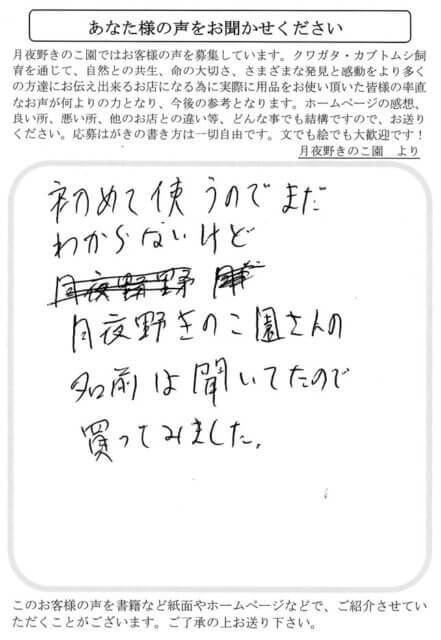 あなた様の声をお聞かせください
月夜野きのこ園ではお客様の声を募集しています。クワガタ・カブトムシ飼
育を通じて、自然との共生、命の大切さ、さまざまな発見と感動をより多く
の方達にお伝え出来るお店になる為に実際に用品をお使い頂いた皆様の率直
なお声が何よりの力となり、今後の参考となります。ホームページの感想、
良い所、悪い所、他のお店との違い等、どんな事でも結構ですので、お送り
ください。応募はがきの書き方は一切自由です。文でも絵でも大歓迎です！
月夜野きのこ園　より
初めて使うのでまだ
わからないけど
月夜野
月夜野きのこ園さんの
名前は聞いてたので
買ってみました。
このお客様の声を書籍など紙面やホームページなどで、ご紹介させてい
ただくことがございます。ご了承の上お送り下さい。